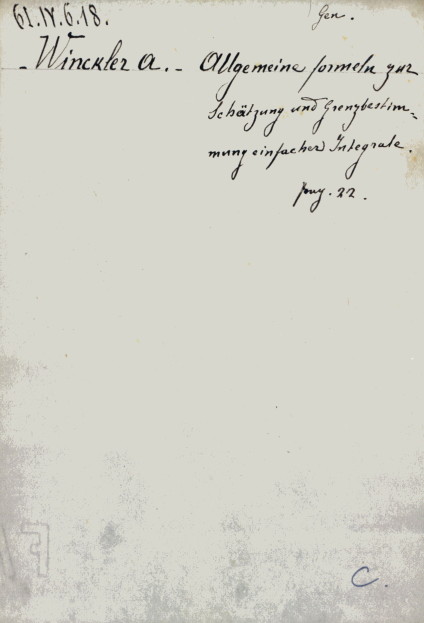 61.IV.6.18.
Gen.
- Winckler A. - Allgemeine formeln zur
Schätzung und Grenzbestim-
mung einfacher Integrale.
pag. 22.
C.